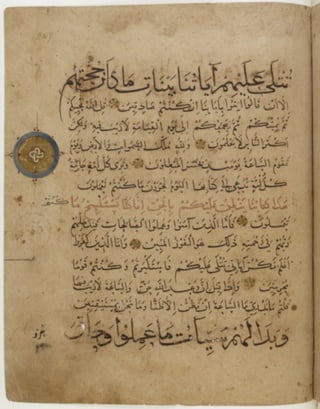 تتلى عليهم آياتنا بينات ما كان حجتهم
إلا أن قالوا ائتوا بآبائنا إن كنتم صادقين قل الله يحييكم
ثم يميتكم ثم يجمعكم إلى يوم القيامة لا ريب فيه ولكن
أكثر الناس لا يعلمون ولله ملك السموات والأرض ويوم
تقوم الساعة يومئذ يخسر المبطلون وترى كل أمة جاثية
كل أمة تدعى إلى كتابها اليوم تجزون ما كنتم تعملون
هذا كتابنا ينطق عليكم بالحق إنا كنا نستنسخ ما كنتم
تعملون فأما الذين آمنوا وعملوا الصالحات فيدخلهم
ربهم في رحمته ذلك هو الفوز المبين وأما الذين كفروا
أفلم تكن آياتي تتلى عليكم فاستكبرتم وكنتم قوما
مجرمين وإذا قيل إن وعد الله حق والساعة لا ريب فيها
قلتم ما ندري ما الساعة إن نظن إلا ظنا وما نحن بمستيقنين
وبدا لهم سيئات ما عملوا وحاق